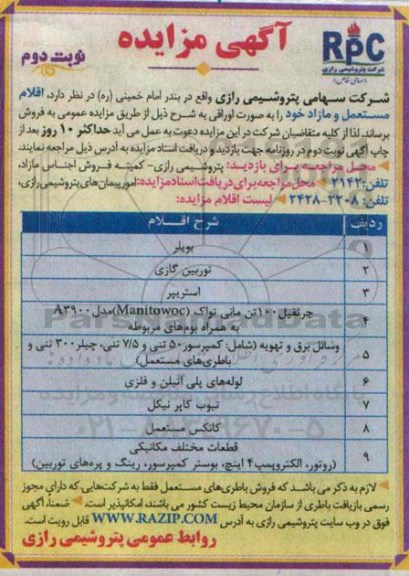 آگهی مزایده
نوبت دوم
RPC
شرکت پتروشیمی رازی
(سهامی خاص)
شرکت سهامی پتروشیمی رازی واقع در بندر امام خمینی (ره) در نظر دارد، اقلام
مستعمل و مازاد خود را به صورت اوراقی به شرح ذیل از طریق مزایده عمومی به فروش
برساند. لذا از کلیه متقاضیان شرکت در این مزایده دعوت به عمل می آید حداکثر ۱۰ روز بعد از
چاپ آگهی نوبت دوم در روزنامه جهت بازدید و دریافت اسناد مزایده به آدرس ذیل مراجعه نمایند.
محل مراجعه برای بازدید: پتروشیمی رازی- کمیته فروش اجناس مازاد،
تلفن: ۲۱۴۲ محل مراجعه برای دریافت اسناد مزایده: امور پیمان‌های پتروشیمی رازی،
تلفن: ۲۲۰۸-۲۴۲۸ لیست اقلام مزایده:
ردیف شرح اقلام
۱ بویلر
۲ توربین گازی
۳ استریپر
۴ جرثقیل ۱۰۰تن مانی تواک (Manitowoc) مدل A۳۹۰۰
به همراه بوم‌های مربوطه
۵ وسائل برق و تهویه (شامل: کمپرسور ۵۰ تنی و ۷/۵ تنی، چیلر ۳۰۰ تنی و
باطری‌های مستعمل)
۶ لوله‌های پلی اتیلن و فلزی
۷ تیوب کاپر نیکل
۸ کانکس مستعمل
۹ قطعات مختلف مکانیکی
(روتور، الکتروپمپ ۴ اینچ، بوستر کمپرسور، رینگ و پره‌های توربین)
لازم به ذکر می باشد که فروش باطری‌های مستعمل فقط به شرکت‌هایی، که دارای مجوز
رسمی بازیافت باطری از سازمان محیط زیست کشور می باشند، امکانپذیر است. ضمنا، آگهی
فوق در وب سایت پتروشیمی رازی به آدرس WWW.RAZIP.COM قابل رویت است.
روابط عمومی پتروشیمی رازی